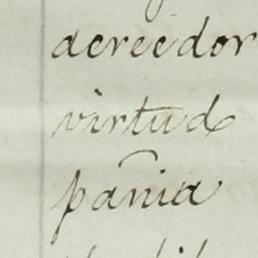 acreedor
virtud
pañia